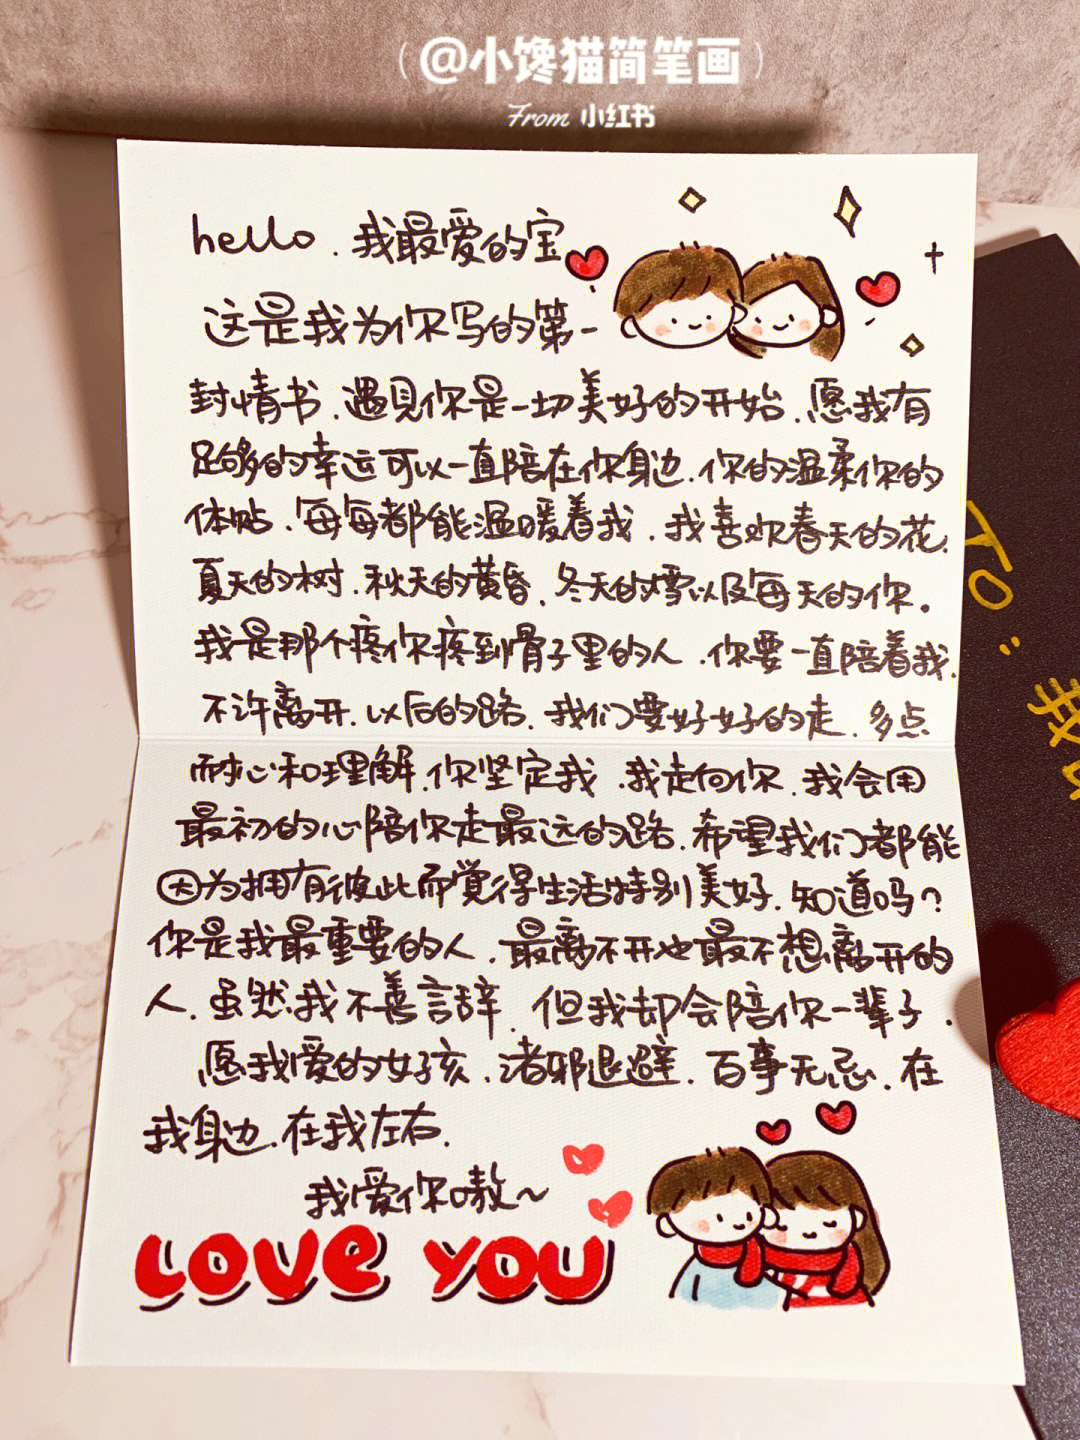 (@小馋猫简笔画)
From 小红书
hello.我最爱的宝
这是我为你写的第一
封情书.遇见你是一切美好的开始.愿我有
足够的幸运可以一直陪在你身边.你的温柔你的
体贴.每每都能温暖着我.我喜欢春天的花.
夏天的树.秋天的黄昏.冬天的雪以及每天的你。
我是那个疼你疼到骨子里的人.你要一直陪着我.
不许离开.以后的路.我们要好好的走.多点
耐心和理解.你坚定我.我走向你.我会用
最初的心陪你走最远的路.希望我们都能
因为拥有彼此而觉得生活特别美好.知道吗?
你是我最重要的人.最离不开也最不想离开的
人.虽然我不善言辞.但我却会陪你一辈子.
愿我爱的女孩.诸邪退避.百事无忌.在
我身边.在我左右.
我爱你嗷~
LOVE YOU
TO:
我